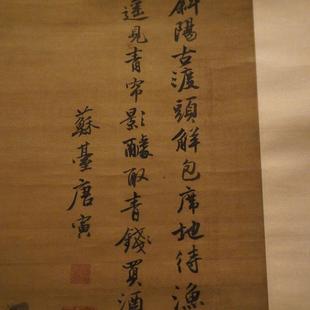 斜陽古渡頭解包席地待漁
遙見青帘影醵取青錢買酒
蘇臺唐寅